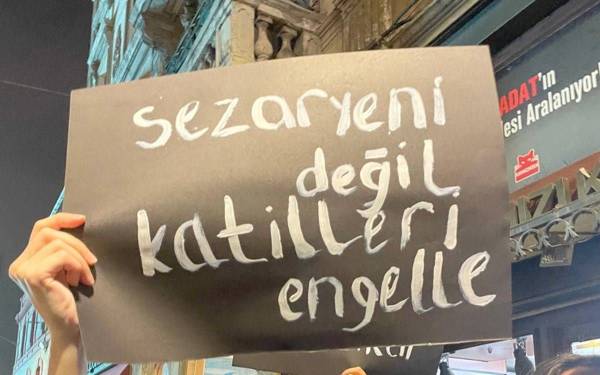 sezaryeni
değil
katilleri
engelle
ADAT'ın
esi Aralanıyor